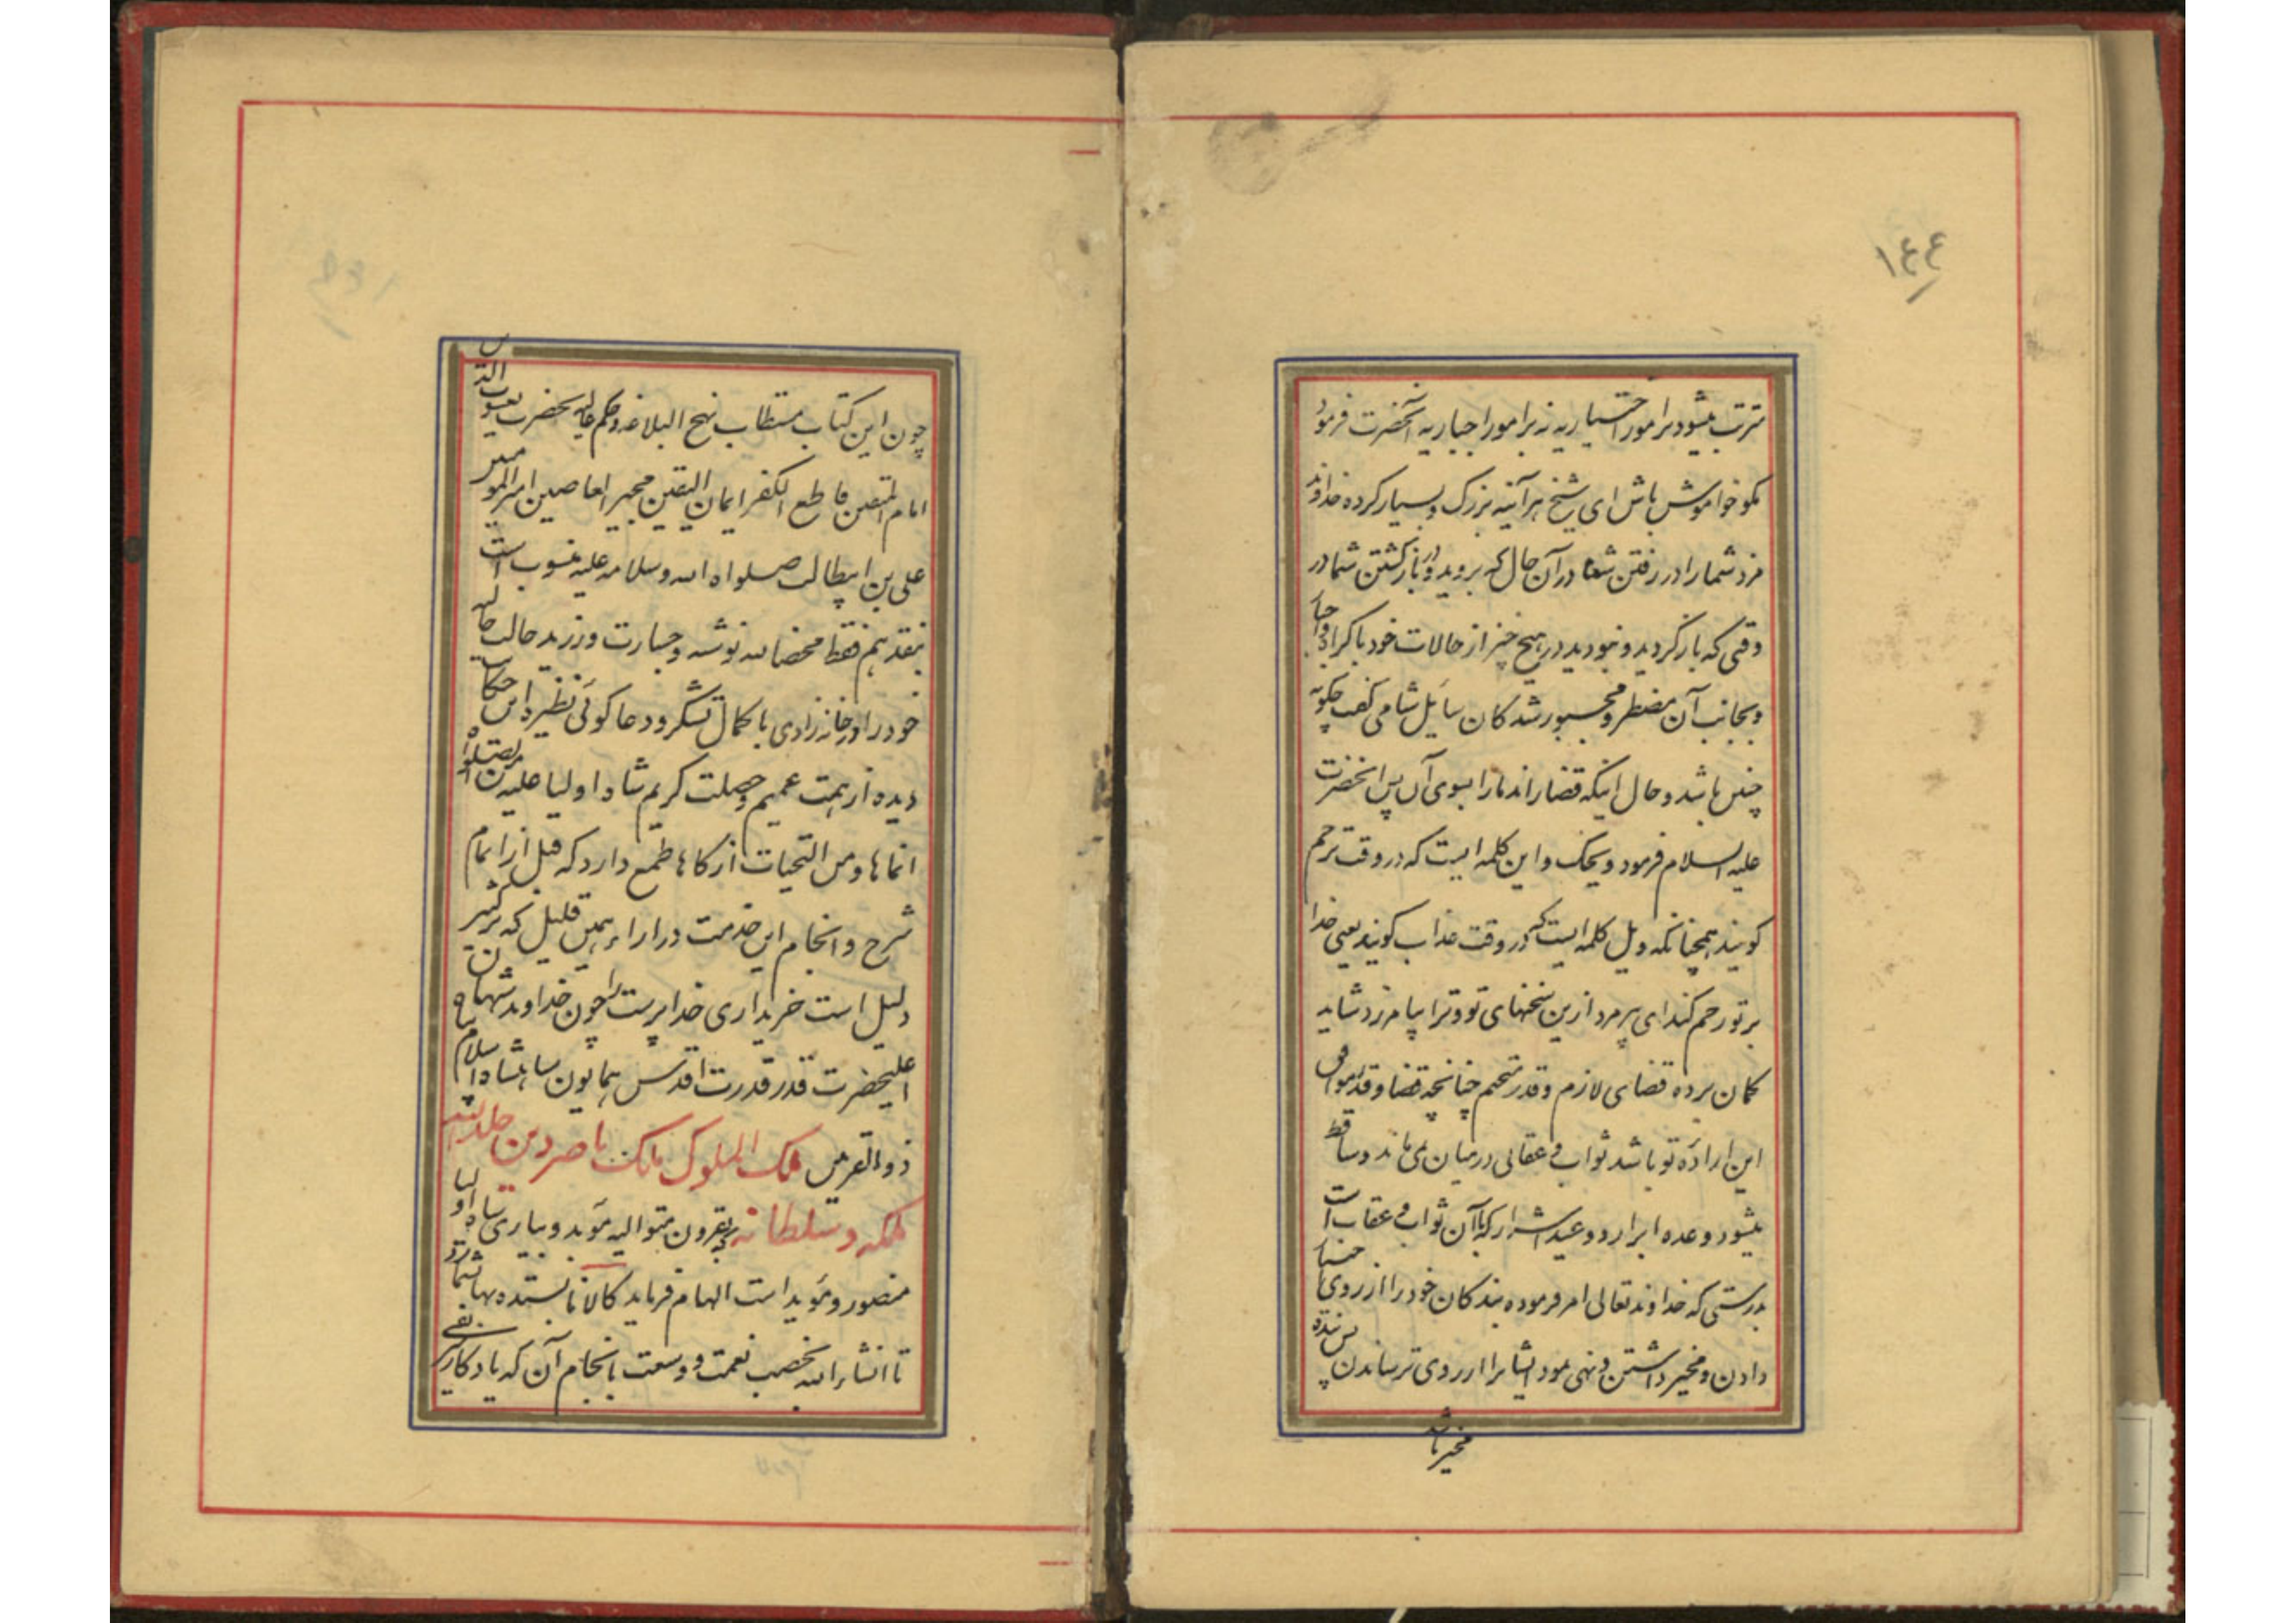 ١٤٤
مترتب میشود برامور اختیاریه نه برامور اجباریه آنحضرت فرمود
مکو خواموش باش ای شیخ هرآینه بزرک و بسیار کرده خداوند
مزد شما را در رفتن شما در آن حال که بروید و در بازکشتن شما در
وقتی که بازکردید و نبودید در هیچ چیز از حالات خود باکراه و اجبار
و بجانب آن مضطر و مجبور شدکان سایل شامی کفت چکونه
چنین باشد و حال اینکه قضا راند مارا بسوی آن پس انحضرت
علیه السلام فرمود ویحک و این کلمه ایست که در وقت ترحم
کویند همچنانکه ویل کلمه ایست که در وقت عذاب کویند یعنی خدا
بر تو رحم کند ای پیرمرد ازین سخنهای تو و ترا بیامرزد شاید
کمان برده قضای لازم و قدر متحتم چنانچه قضا و قدر موافق
این اراده تو باشد ثواب و عقابی در میان نمی ماند و ساقط
میشود وعده ابرار و وعید اشرار که بآن ثواب و عقاب است
بدرستی که خداوند تعالی امر فرموده بندکان خود را از روی اختیار
دادن و مخیر داشتن و نهی نمود ایشانرا از روی ترساندن پس بنده
مخیر باشد
چون این کتاب مستطاب نهج البلاغه و حکم عالیه بحضرت یعسوب الدین
امام المتقین قاطع الکفر ایمان الیقین مجیر العاصین امیر المومنین
علی بن ابیطالب صلواه الله و سلامه علیه منسوب است
بنقد هم فقط محضا لله نوشته و جسارت ورزید حالت حالیه
خود را در خانه زادی با کمال تشکر و دعا کوئی نظیر این حکایت
دیده از همت عمیم و خصلت کریم شاه اولیا علیه من الصلواه
انماها و من التحیات ازکاها طمع دارد که قبل از اتمام
شرح و انجام این خدمت در ازاء همین قلیل که بر کثیر
دلیل است خریداری خدا پرست را چون خداوند
اعلیحضرت قدر قدرت اقدس همایون شاهنشاه اسلام پناه
ذوالقرنین ملک الملوک مالک ناصر دین خلد الله
ملکه و سلطانه بقرون متوالیه مؤید و بیاری شاه اولیا
منصور و مؤید است الهام فرماید کالا نا بسنده بها
تا انشاء الله بخصب نعمت و وسعت بانجام آن که یادکار